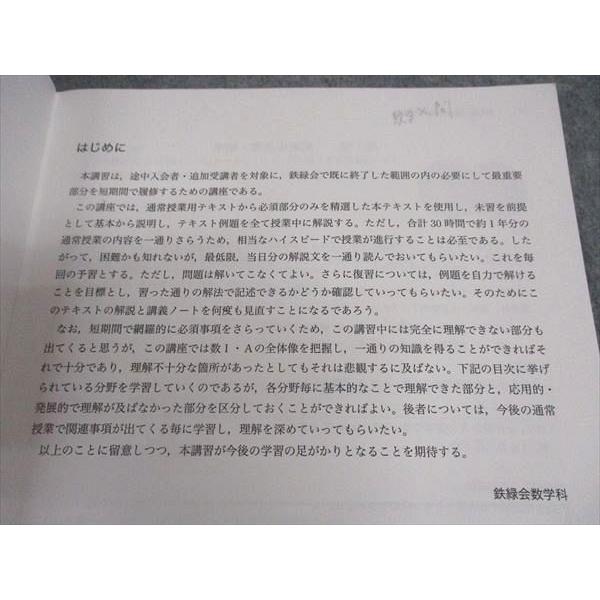 はじめに
本講習は，途中入会者・追加受講者を対象に，鉄緑会で既に終了した範囲の内の必要にして最重要
部分を短期間で履修するための講座である。
この講座では，通常授業用テキストから必須部分のみを精選した本テキストを使用し，未習を前提
として基本から説明し，テキスト例題を全て授業中に解説する。ただし，合計30時間で約１年分の
通常授業の内容を一通りさらうため，相当なハイスピードで授業が進行することは必至である。した
がって，困難かも知れないが，最低限，当日分の解説文を一通り読んでおいてもらいたい。これを毎
回の予習とする。ただし，問題は解いてこなくてよい。さらに復習については，例題を自力で解ける
ことを目標とし，習った通りの解法で記述できるかどうか確認していってもらいたい。そのためにこ
のテキストの解説と講義ノートを何度も見直すことになるであろう。
なお，短期間で網羅的に必須事項をさらっていくため，この講習中には完全に理解できない部分も
出てくると思うが，この講座では数Ⅰ・Ａの全体像を把握し，一通りの知識を得ることができればそ
れで十分であり，理解不十分な箇所があったとしてもそれは悲観するに及ばない。下記の目次に挙げ
られている分野を学習していくのであるが，各分野毎に基本的なことで理解できた部分と，応用的・
発展的で理解が及ばなかった部分を区分しておくことができればよい。後者については，今後の通常
授業で関連事項が出てくる毎に学習し，理解を深めていってもらいたい。
以上のことに留意しつつ，本講習が今後の学習の足がかりとなることを期待する。
鉄緑会数学科